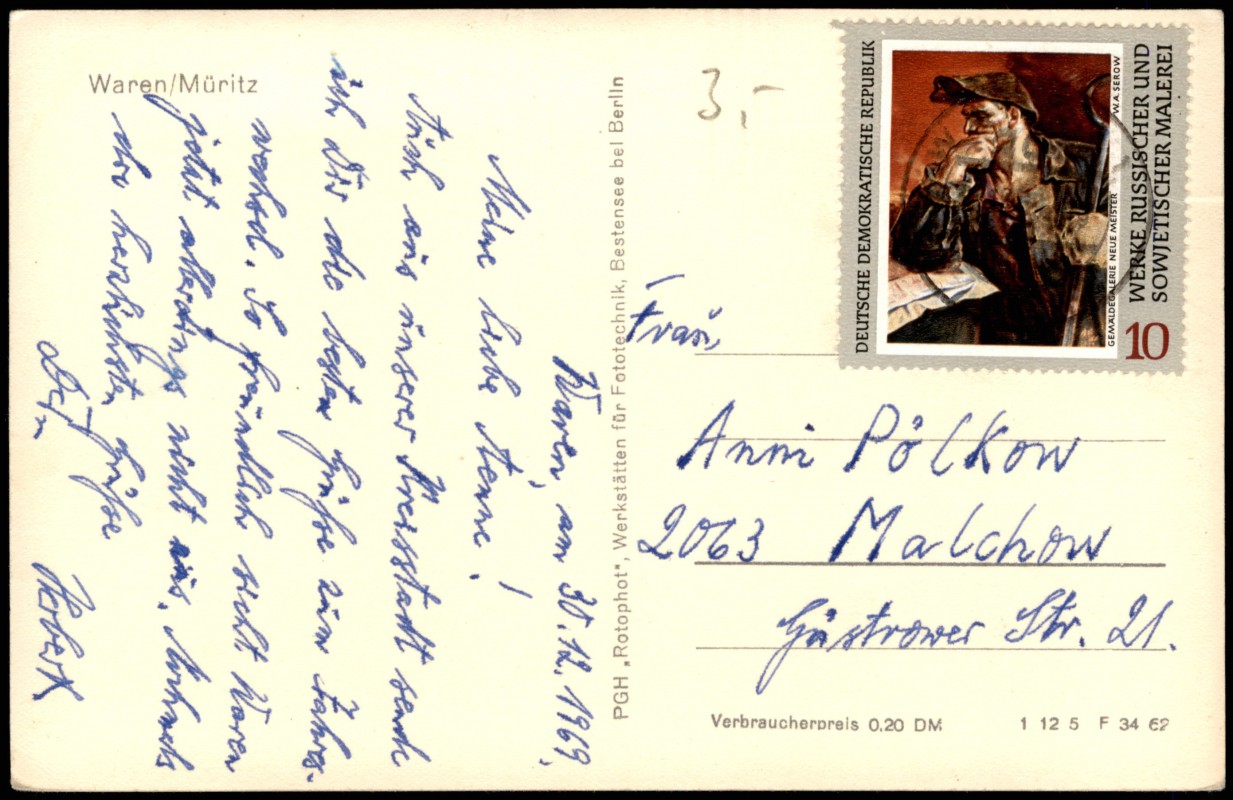 Waren/Müritz
Waren, am 30.12.1969.
Meine liebe Aenne!
Auch aus unserer Kreisstadt sende
ich Dir die besten Grüße zum Jahres-
wechsel. So freundlich sieht Waren
jetzt allerdings nicht aus. Nochmals
die herzlichsten Grüße
Dein
Herbert
PGH „Rotophot“, Werkstätten für Fototechnik, Bestensee bei Berlin
3,-
DEUTSCHE DEMOKRATISCHE REPUBLIK
W.A. SEROW
GEMÄLDEGALERIE NEUE MEISTER
WERKE RUSSISCHER UND
SOWJETISCHER MALEREI
10
Frau
Anni Pölkow
2063 Malchow
Güstrower Str. 21.
Verbraucherpreis 0,20 DM 1 12 5 F 34 62